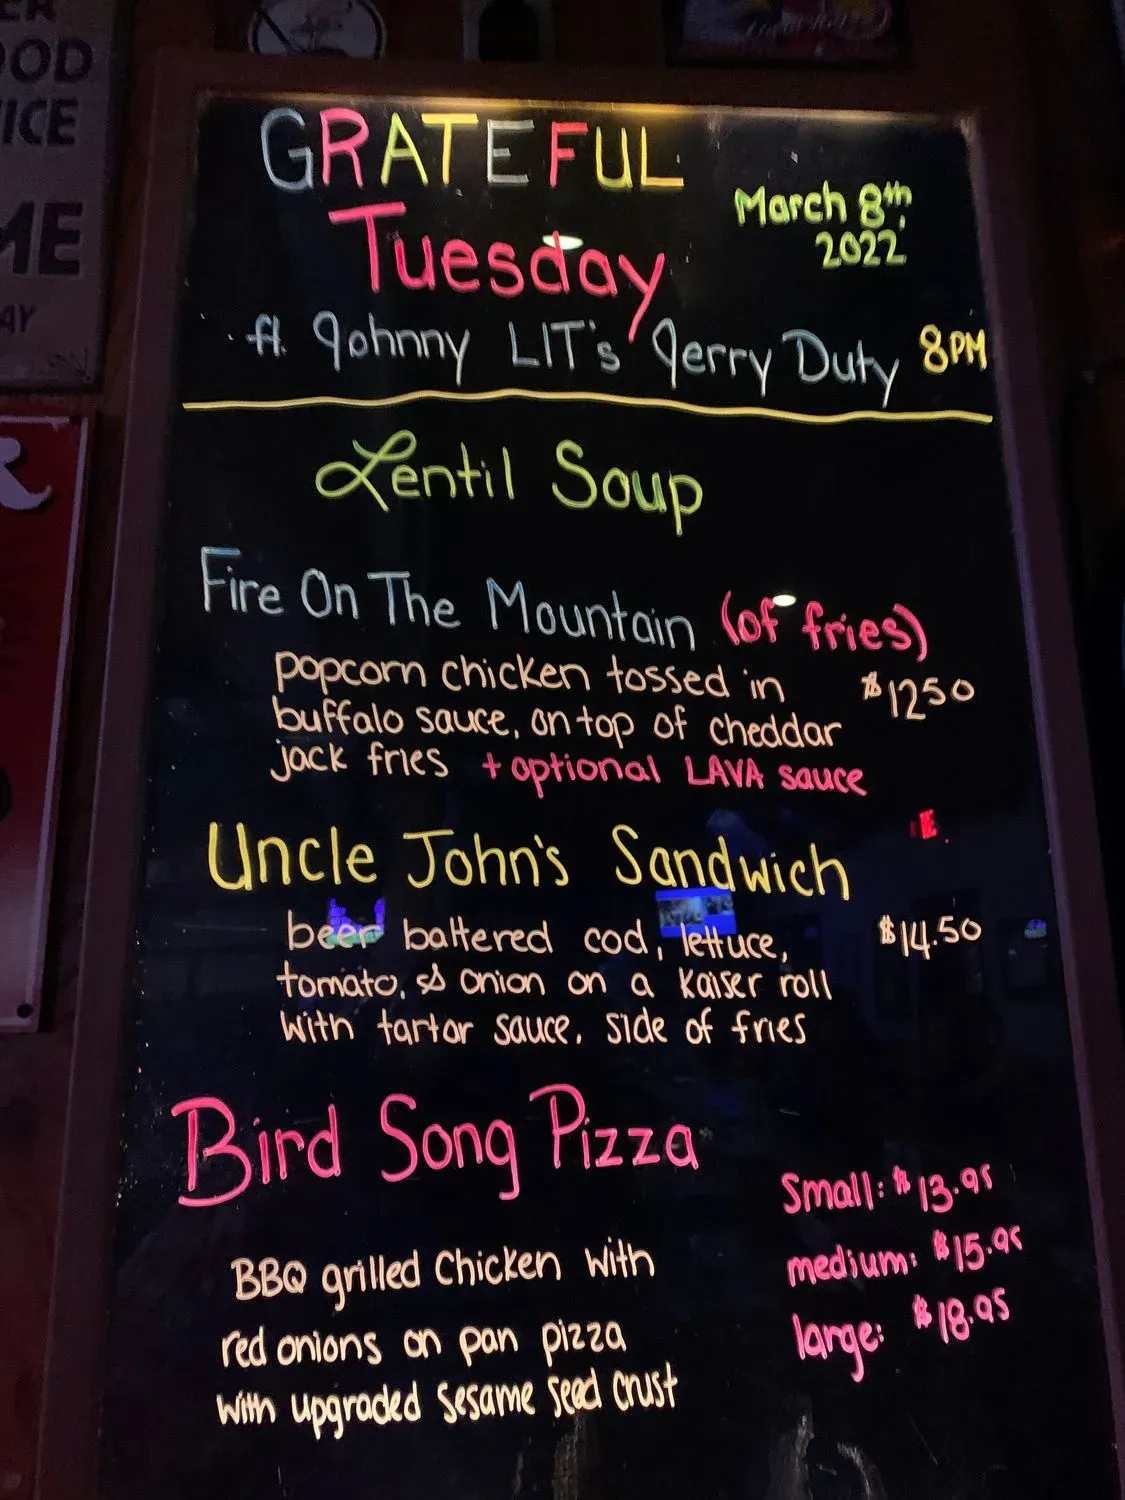 OOD
ICE
ME
AY
GRATEFUL
Tuesday
March 8th,
2022
ft. Johnny LIT's Jerry Duty 8PM
Lentil Soup
Fire On The Mountain (of fries)
popcorn chicken tossed in $1250
buffalo sauce, on top of cheddar
jack fries + optional LAVA sauce
Uncle John's Sandwich
beer battered cod, lettuce, $14.50
tomato, & onion on a kaiser roll
with tartar sauce, side of fries
Bird Song Pizza
Small: $13.95
BBQ grilled Chicken with
medium: $15.95
red onions on pan pizza
large: $18.95
with upgraded sesame seed crust